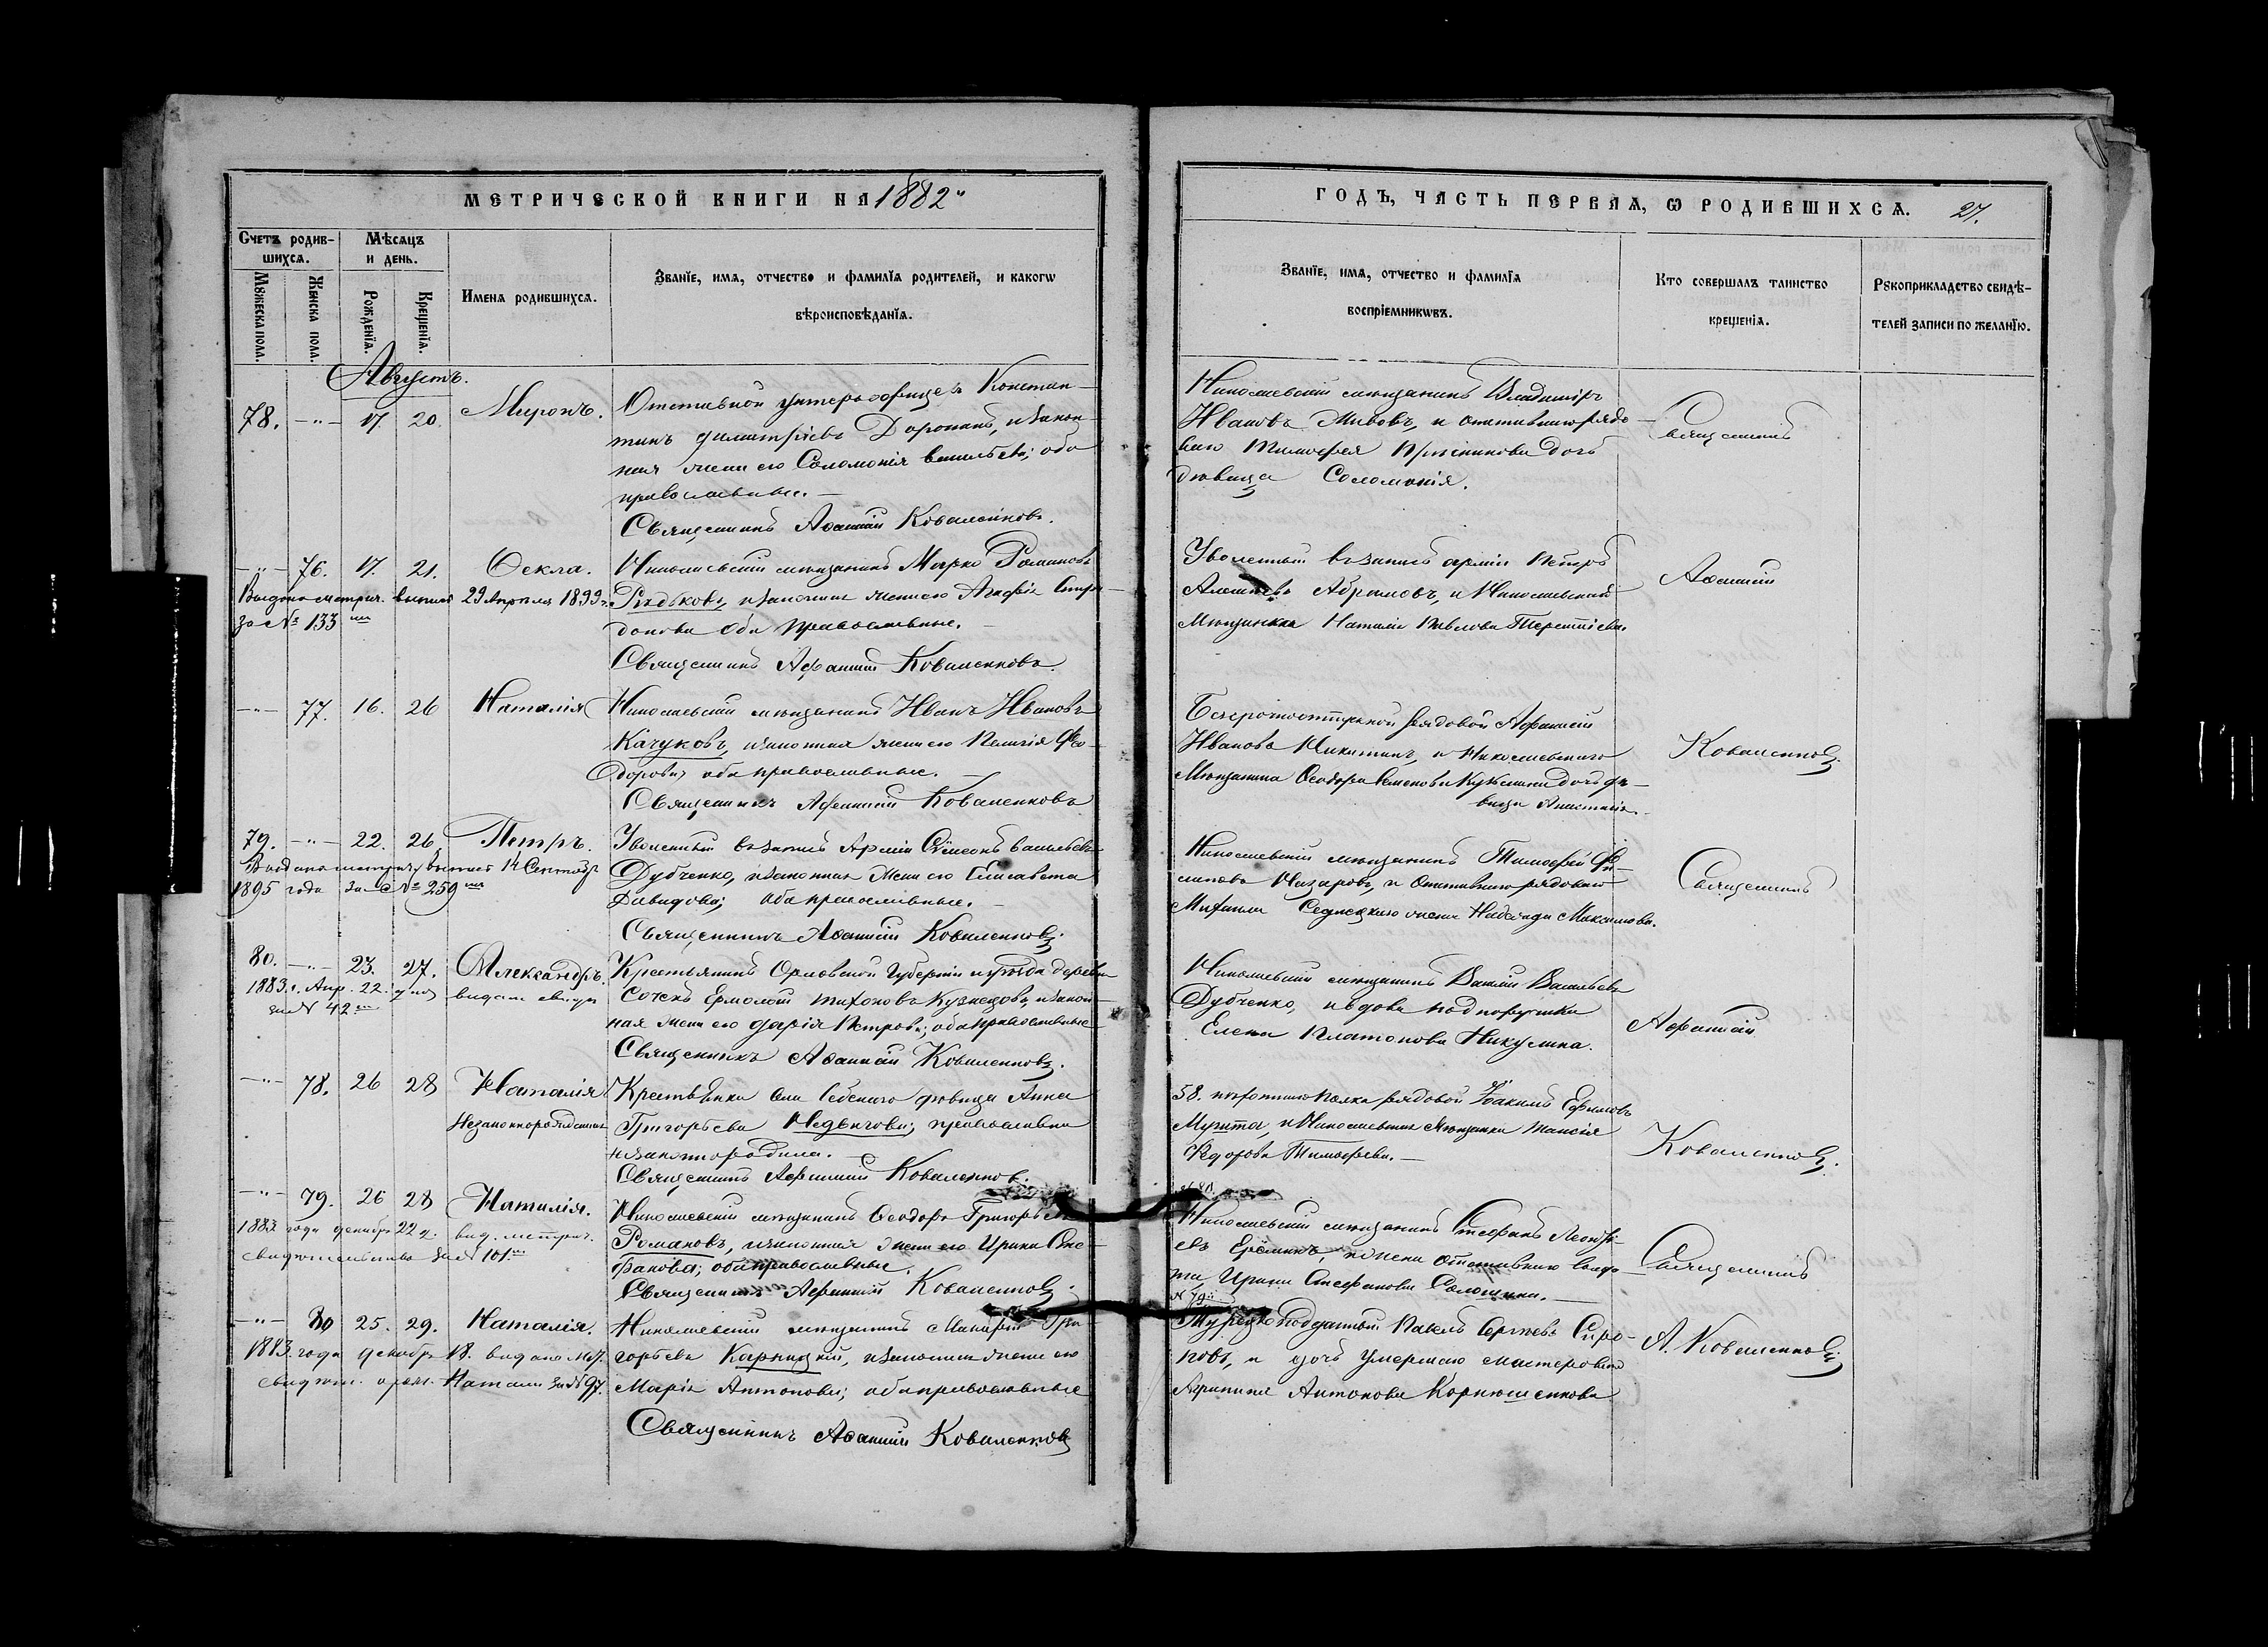 МЕТРИЧЕСКОЙ КНИГИ НА 1882
Счетъ родив-
шихся.
Мѣсяцъ
и день.
Мужеска пола.
Женска пола.
Рожденїя.
Крещенїя.
Имена родившихся.
Званїе, имя, отчество и фамилїя родителей, и какогѡ
вѣроисповѣданїя.
Августъ.
78. -"- 17. 20. Миронъ.
Отставной унтеръ-офицеръ Констан-
тинъ Димитріевъ законная
жена его Соломонія Васильева; оба
православные.
Священникъ Аѳанасій Коваленковъ.
-"- 76. 17. 21. Ѳекла.
Выдана метрич. выпись 29 Апрѣля 1899 г.
за № 133
Николаевскій мѣщанинъ Марко Романовъ
Рѣдьковъ, и законная жена его
оба православные.
Священникъ Аѳанасій Коваленковъ
-"- 77. 16. 26 Наталія
Николаевскій мѣщанинъ Иванъ Ивановъ
Качуковъ, и законная жена его Пелагія Ѳео-
дорова; оба православные.
Священникъ Аѳанасій Коваленковъ
79. -"- 22. 26. Петръ.
Выдана метрич. выпись 14 Сентября
1895 года за № 259
Уволенный въ запасъ Арміи Сѵмеонъ Васильевъ
Дубченко, и законная жена его Елисавета
Давидова; оба православные.
Священникъ Аѳанасій Коваленковъ.
80. -"- 23. 27. Александръ.
1883 г. Апр. 22 дня выдано свидѣт.
за № 42
Крестьянинъ Орловской Губерніи и уѣзда деревни
Ермолай Тихоновъ Кузнецовъ, и закон-
ная жена его Дарія Петрова; оба православные
Священникъ Аѳанасій Коваленковъ.
-"- 78. 26 28 Наталія
Незаконнорожденная
Крестьянка дѣвица Анна
Григорьева Недвигова; православная
незаконнородила.
Священникъ Аѳанасій Коваленковъ.
-"- 79. 26 28 Наталія.
1883 года декабря 22 д. выд. метрич.
свидѣтельство за № 101
Николаевскій мѣщанинъ Ѳеодоръ Григорьевъ
Романовъ, и законная жена его Ирина Сте-
фанова; оба православные.
Священникъ Аѳанасій Коваленковъ.
-"- 80 25. 29. Наталія.
1883 года декабря 18. выдано мет.
свидѣт. Наталіи за № 97.
Николаевскій мѣщанинъ Макарій Гри-
горьевъ Карницкій, и законная жена его
Марія Антонова; оба православные
Священникъ Аѳанасій Коваленковъ
ГОДЪ, ЧАСТЬ ПЕРВАЯ, Ѡ РОДИВШИХСЯ. 27.
Званїе, имя, отчество и фамилїя
воспрїемникѡвъ.
Кто совершалъ таинство
крещенїя.
Рукоприкладство свидѣ-
телей записи по желанїю.
Николаевскій мѣщанинъ Владиміръ
Ивановъ и отставного рядо-
вого Тимоѳея дочь
дѣвица Соломонія.
Священникъ
Уволенный въ запасъ арміи Петръ
Алексѣевъ Абрамовъ, и Николаевская
Мѣщанка Наталія Павлова Терентіева.
Аѳанасій
Безсрочноотпускной рядовой Аѳанасій
Ивановъ Никитинъ, и Николаевскаго
Мѣщанина Ѳеодора Семенова дочь дѣ-
вица Анастасія.
Коваленковъ.
Николаевскій мѣщанинъ Тимоѳей Фи-
липовъ Назаровъ, и отставного рядового
Михаила жена Надежда Максимова.
Священникъ
Николаевскій мѣщанинъ Василій Васильевъ
Дубченко, и вдова подпоручика
Елена Платонова Никулина.
Аѳанасій
58. пѣхотнаго полка рядовой Іоакимъ Ефимовъ
и Николаевская мѣщанка Таисія
Ѳедорова Тимоѳеева.
Коваленковъ.
№ 80.
Николаевскій мѣщанинъ Стефанъ Леонті-
евъ Ерёминъ, и жена отставного солда-
та Ирина Стефанова
Священникъ
№ 79
Турецко подданный Павелъ Сергѣевъ Спро-
повъ, и дочь умершаго мастероваго
Агрипина Антонова Корнюшенкова
А. Коваленковъ.